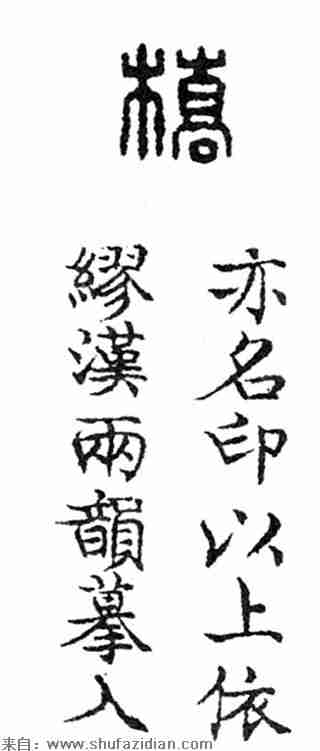 橋
亦名印以上依
繆漢兩韻摹入
来自：www.shufazidian.com